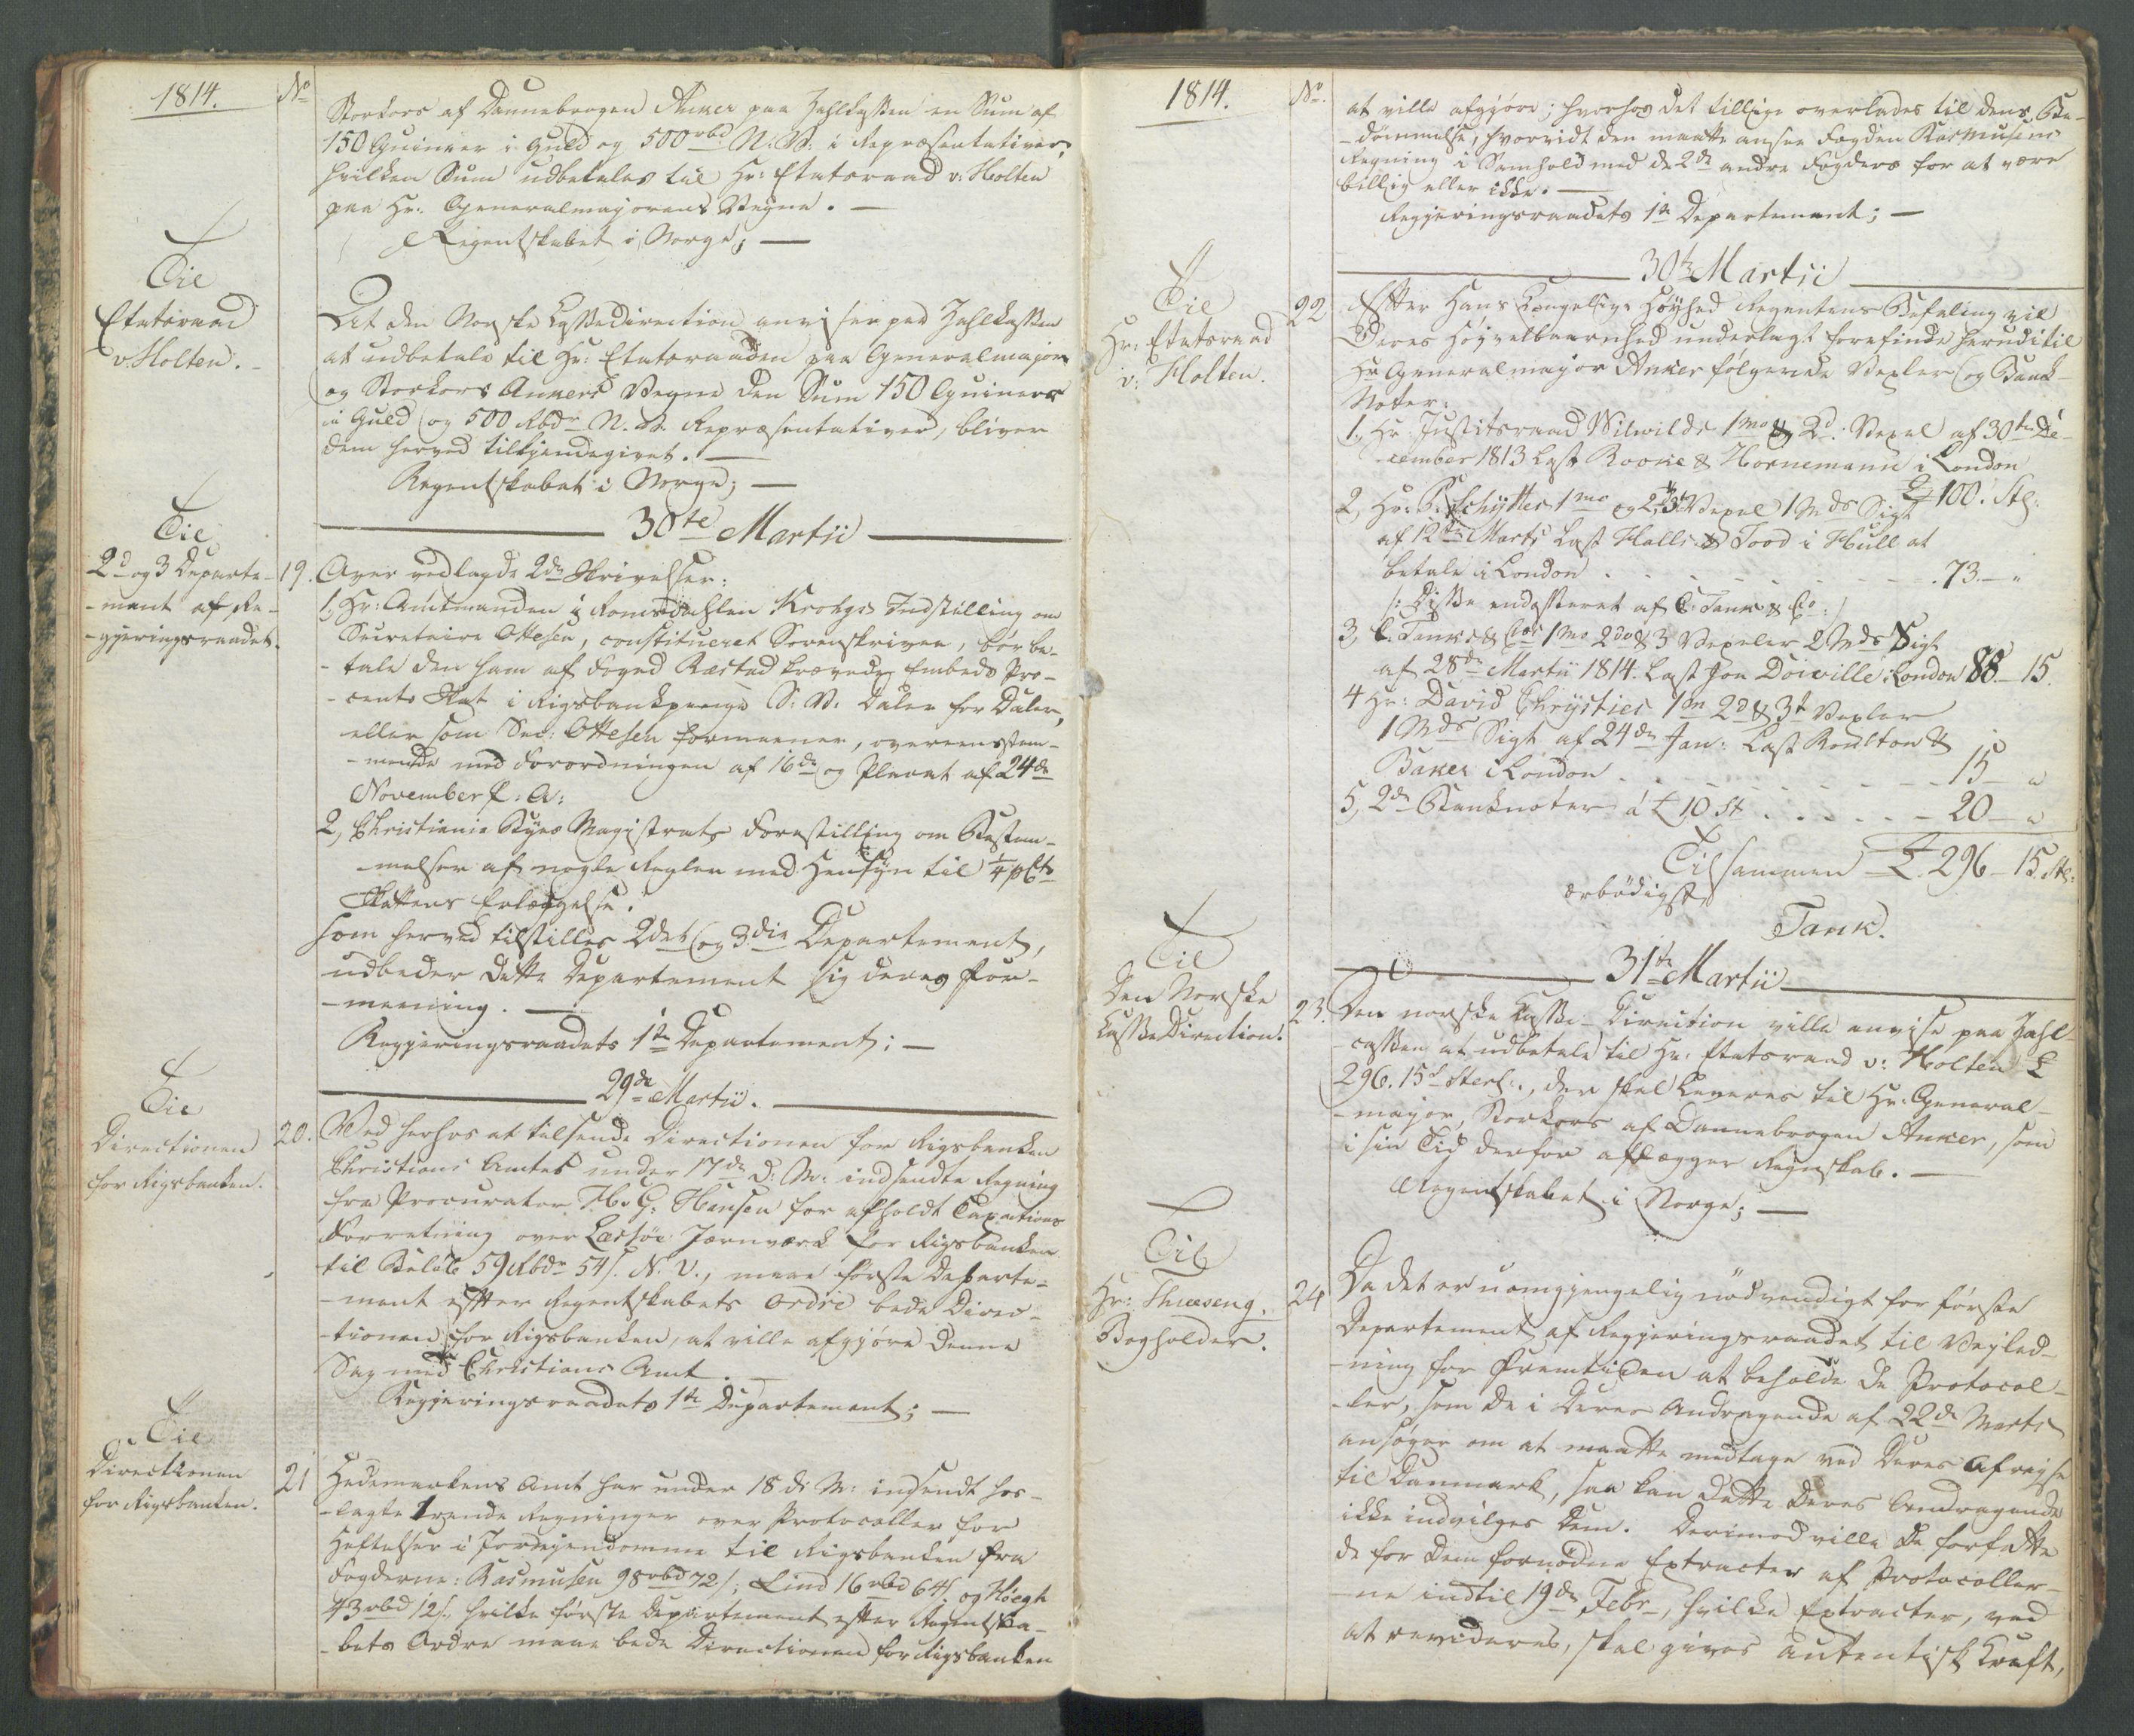 1814.
No
Storkors af Dannebrogen Anker paa Zahlkassen en Sum af
150 Guineer i Guld og 500 rbd. N. V. i Repræsentativer,
hvilken Sum udbetales til Hr: Etatsraad v: Holten
paa Hr: Generalmajorens Vegne. —
Regentskabet i Norge; —
Til
Etatsraad
v: Holten. -
At den Norske Cassedirection anviser paa Zahlkassen
at udbetale til Hr: Etatsraaden paa Generalmajor
og Storkors Ankers Vegne den Sum 150 Guineer
in Guld og 500 Rbdr N. V. Repræsentativer, bliver
dem herved tilkjendegivet. —
Regentskabet i Norge; —
30te Martii
Til
2d og 3 Departe-
-ment af Re-
-gjeringsraadet.
19.
Over vedlagde 2de Skrivelser:
1, Hr: Amtmanden i Romsdahlen Krohgs Indstilling om
Secretaire Ottesen, constitueret Sorenskriver, bør be-
-tale den ham af Foged Ræstad krævede Embeds Pro-
-cents Skat i Rigsbankpenge S: V: Daler for Daler,
eller som Sec: Ottesen formener, overeensstem-
-mende med Forordningen af 16de og Placat af 24de
November f. A:
2, Christiania Byes Magistrats Forestilling om Bestem-
-melser af nogle Regler med Hensyn til ¼ pCts
Skattens Erlæggelse.
som herved tilstilles 2det og 3die Departement,
udbeder dette Departement sig deres For-
-meening. —
Regjeringsraadets 1te Departement; —
29de Martii.
Til
Directionen
for Rigsbanken.
20.
Ved herhos at tilsende Directionen for Rigsbanken
Christians Amtes under 17de d: M: indsendte Regning
fra Procurator H. G. Hansen for afholdt Taxations
Forretning over Lessøe Jernværk for Rigsbanken
til Beløb 59 Rbdr 54 s. N. V., maae første Departe-
-ment efter Regentskabets Ordre bede Direc-
-tionen for Rigsbanken, at ville afgjøre denne
Sag med Christians Amt. —
Regjeringsraadets 1te Departement; —
Til
Directionen
for Rigsbanken.
21
Hedemarkens Amt har under 18 d: M: insendt hos-
-lagte trende Regninger over Protocoller for
Heftelser i Jordejendomme til Rigsbanken fra
Fogderne: Rasmusen 98 rbd 72 s; Lind 16 rbd 64 s. og Høegh
43 rbd 12 s., hvilke første Departement efter Regentska-
-bets Ordre maae bede Directionen for Rigsbanken
1814.
No.
at ville afgjøre; hvorhos det tillige overlades til dens Be-
-dømmelse, hvorvidt den maatte ansee Fogden Rasmusens
Regning i Samhold med de 2de andre Fogders for at være
billig eller ikke. —
Regjeringsraadets 1te Departement; —
30te Martii
Til
Hr: Etatsraad
v: Holten.
22
Efter Hans Kongelige Høyhed Regentens Befaling vil
Deres Høyvelbaarenhed underlagt forefinde herudi til
Hr Generalmajor Anker følgende Vexler og Bank-
Noter:
1, Hr Justitsraad Nilwilds 1mo & 2d. Vexel af 30te De-
-cember 1813 Last Rooke & Hornemann i London
£ 100. Stl:
2, Hr: P. Schjötter 1mo og 2d 3t Vexel 1 Mds Sigt
af 12te Marts Last Halls & Tood i Hull at
betale i London . . . . . . . . 73. — "
/: Disse endosseret af C. Tank & Co :/
3, C. Tanks & Coes 1mo 2do & 3 Vexeler 2 Mds Sigt
af 28de Martii 1814. Last Jon Dowille i London 88. — 15.
4 Hr: David Chrysties 1m 2d & 3t Vexler
1 Mds Sigt af 24de Jan: Last Roulton &
Baker i London . . . . . . . . 15 — "
5, 2de Banknoter á £ 10 St . . . . . . 20 — "
Tilsammen £. 296 — 15. Stl:
ærbødigst
Tank.
31te Martii
Til
Den Norske
Casse Direction.
23.
Den norske Casse-Direction ville anvise paa Zahl-
cassen at udbetale til Hr: Etatsraad v: Holten £
296. 15 s Sterl:., der skal Leveres til Hr: General-
-major, Storkors af Dannebrogen Anker, som
i sin Tid derfor aflægger Regnskab. —
Regentskabet i Norge; —
Til
Hr: Thueseng.
Bogholder.
24
Da det er uomgjengelig nødvendigt for første
Departement af Regjeringsraadet til Vejled-
-ning for Fremtiden at beholde de Protocol-
-ler, som De i Deres Andragende af 22de Marts
ansøger om at maatte medtage ved Deres Afreyse
til Danmark, saa kan dette Deres Andragende
ikke indvilges Dem. Derimod ville De forfatte
de for Dem fornødne Extracter af Protocoller-
-ne indtil 19de Febr., hvilke Extracter, ved
at revideres, skal gives autentisk Kraft,